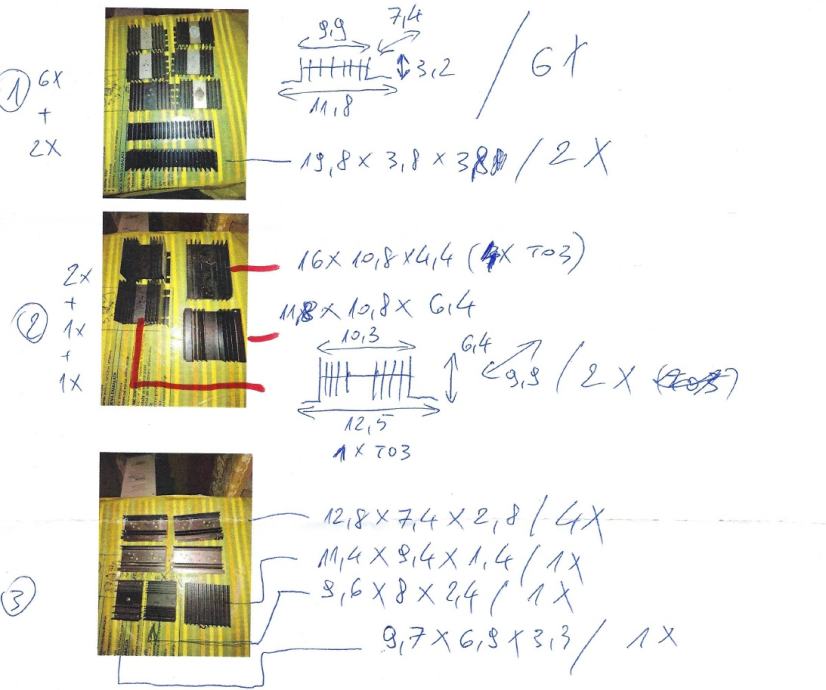 9,9
7,4
1 6X
3,2
/ 6X
+
11,8
2X
19,8 X 3,8 X 3,8 / 2X
16 X 10,8 X 4,4 (4X TO3)
2X
+
11,8 X 10,8 X 6,4
2 1X
10,3
6,4
+
9,9 / 2X
1X
12,5
1 X TO3
12,8 X 7,4 X 2,8 / 4X
11,4 X 9,4 X 1,4 / 1X
3
9,6 X 8 X 2,4 / 1X
9,7 X 6,9 X 3,3 / 1X